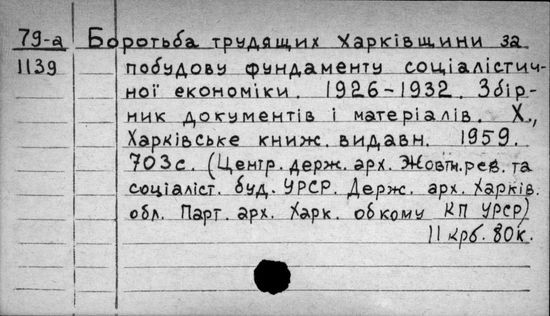 79-а Боротьба трудящих Харківщини за
1139 побудову фундаменту соціалістич-
ної економіки. 1926-1932. Збір-
ник документів і матеріалів. Х.,
Харківське книж. видавн. 1959.
703с. (Центр. держ. арх. Жовтн. рев. та
соціаліст. буд. УРСР. Держ. арх. Харків.
обл. Парт. арх. Харк. обкому КП УРСР)
11 крб. 80к.